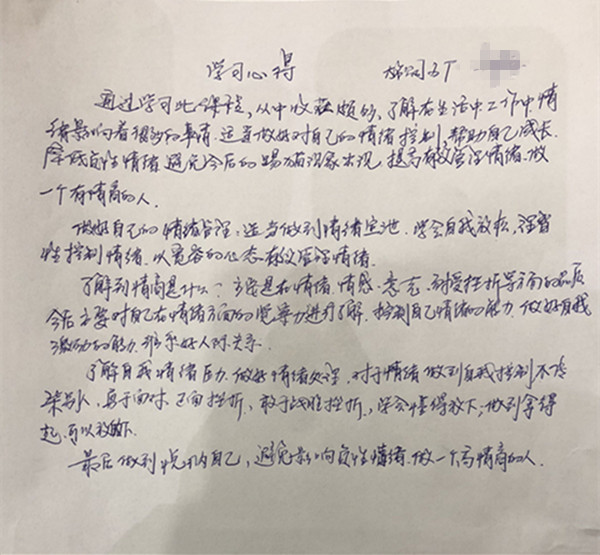 学习心得
通过学习此课程，从中收获颇多，了解在生活中工作中情
绪影响着很多的事情。适当做好对自己的情绪控制，帮助自己成长。
降低负性情绪，避免今后的踢猫现象出现，提高有效管理情绪。做
一个有情商的人。
做好自己的情绪管理，适当做到情绪宣泄。学会自我放松，理智
性控制情绪。以宽容的心态有效管理情绪。
了解到情商是什么？主要是在情绪、情感、意志、耐受挫折等方面的品质
今后主要对自己在情绪方面的觉察力进行了解。控制自己情绪的能力。做好自我
激励的能力。维系好人际关系。
了解自我情绪压力。做好情绪处理，对于情绪做到自我控制不传
染别人，勇于面对正面挫折，敢于战胜挫折，学会懂得放下，做到拿得
起，可以放下。
最后做到悦纳自己，避免影响负性情绪。做一个高情商的人。